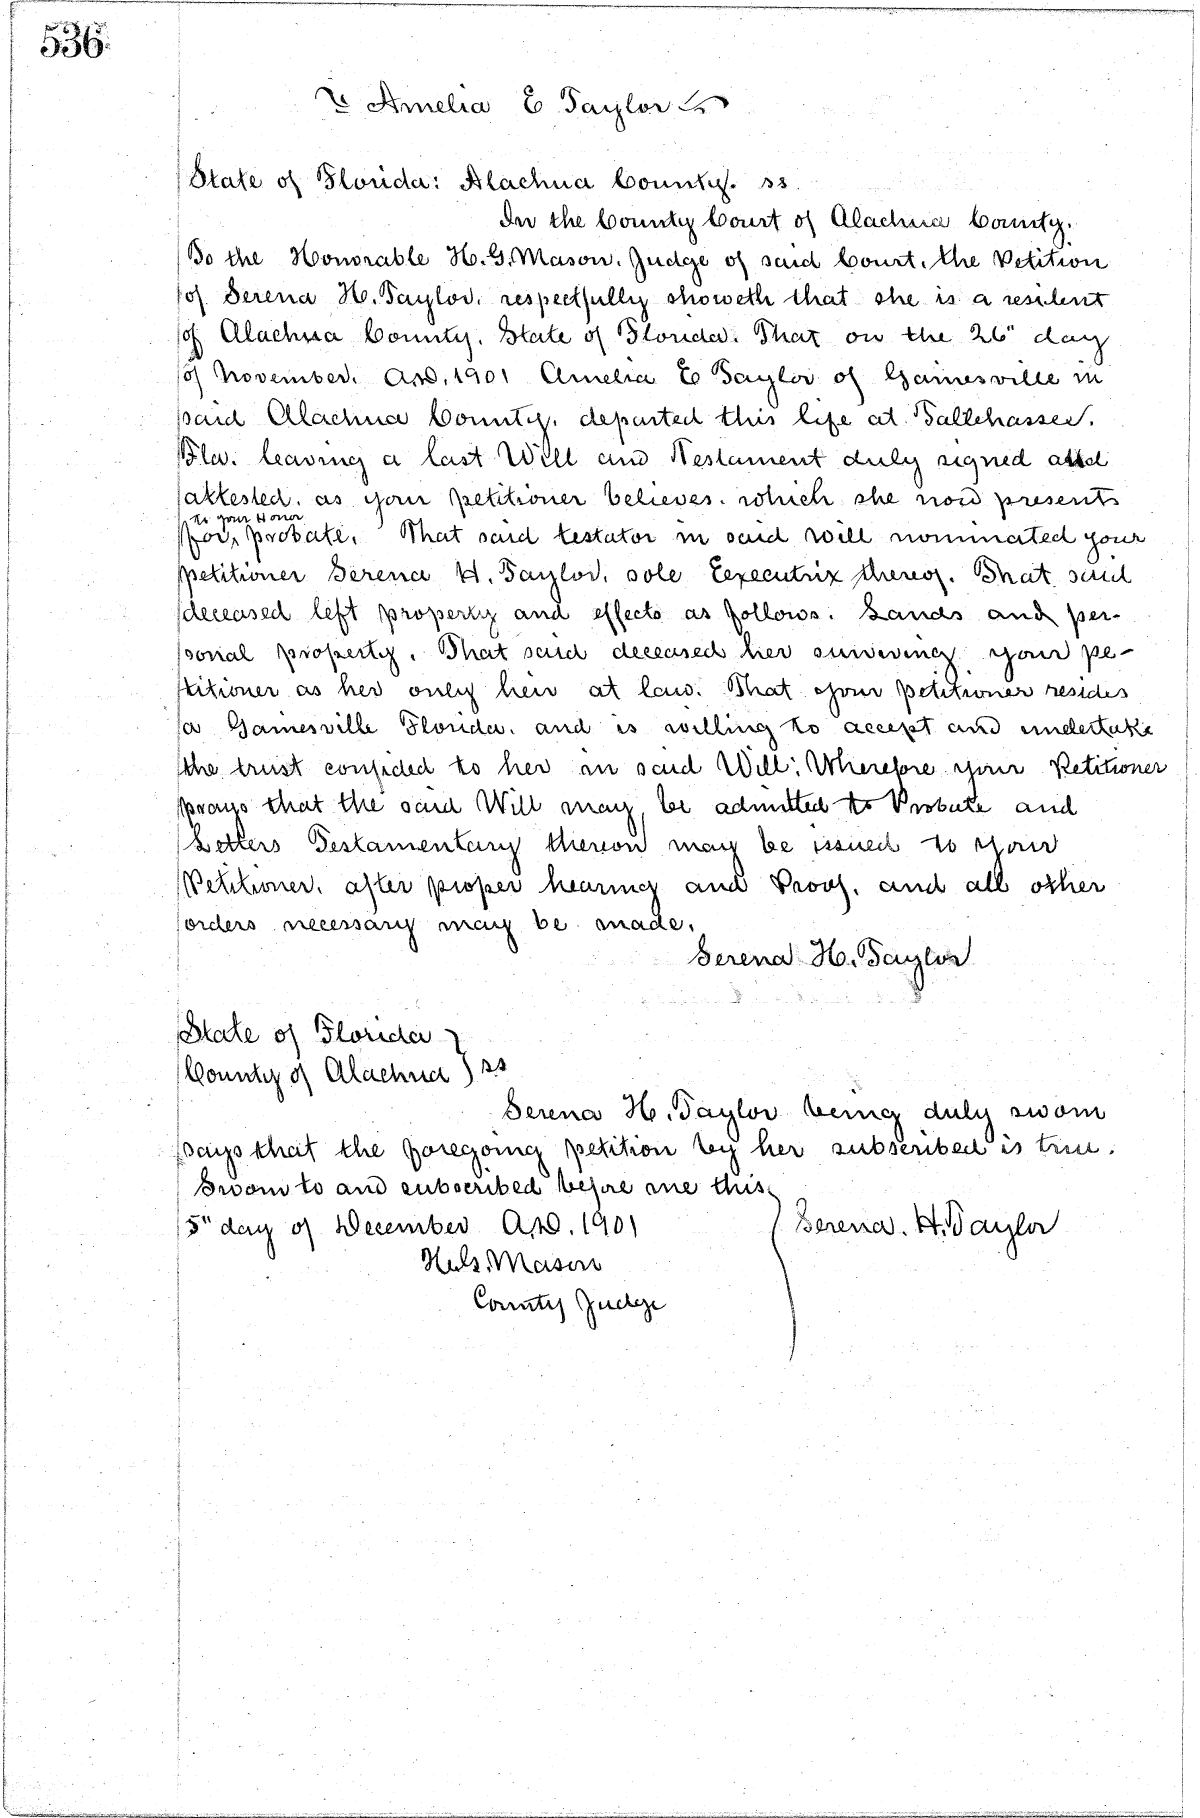 536.
Amelia E Taylor
State of Florida: Alachua County. ss.
In the County Court of Alachua County.
To the Honorable H. G. Mason. Judge of said Court, the Petition
of Serena H. Taylor, respectfully showeth that she is a resident
of Alachua County, State of Florida. That on the 26" day
of November, A.D. 1901 Amelia E Taylor of Gainesville in
said Alachua County, departed this life at Tallehassee,
Fla. leaving a last Will and Testament duly signed and
attested, as your petitioner believes, which she now presents
to your Honor
for, probate. That said testator in said will nominated your
petitioner Serena H. Taylor, sole Eexecutrix thereof. That said
deceased left property and effects as follows. Lands and per-
sonal property. That said deceased her surviving your pe-
titioner as her only heir at law. That your petitioner resides
a Gainesville Florida, and is willing to accept and undertake
the trust confided to her in said Will; Wherefore your Petitioner
prays that the said Will may be admitted to Probate and
Letters Testamentary thereon may be issued to your
Petitioner, after proper hearing and Proof, and all other
orders necessary may be made.
Serena H. Taylor
State of Florida }
County of Alachua } ss
Serena H. Taylor being duly sworn
says that the foregoing petition by her subscribed is true.
Sworn to and subscribed before me this
5" day of December A.D. 1901
Serena. H. Taylor
Mason
County Judge